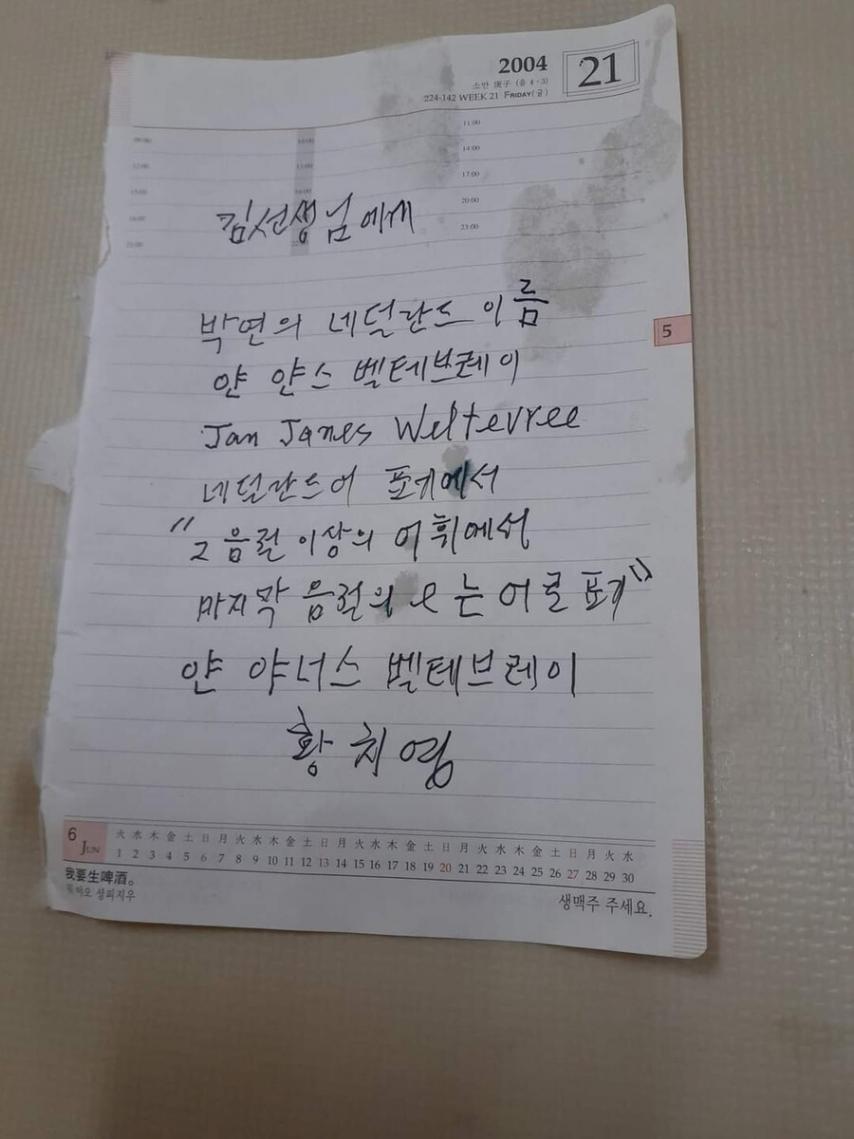 2004 21
소만 庚子 (음 4·3)
224-142 WEEK 21 FRIDAY(금)
09:00 10:00 11:00
12:00 13:00 14:00
15:00 16:00 17:00
18:00 20:00
21:00 23:00
김선생님에게
박연의 네덜란드 이름
얀 얀스 벨테브레이
5
Jan Janes Weltevree
네덜란드어 표기에서
"2음절 이상의 어휘에서
마지막 음절의 e 는 어로 표기"
얀 야너스 벨테브레이
황치영
6 JUN 火 水 木 金 土 日 月 火 水 木 金 土 日 月 火 水 木 金 土 日 月 火 水 木 金 土 日 月 火 水
1 2 3 4 5 6 7 8 9 10 11 12 13 14 15 16 17 18 19 20 21 22 23 24 25 26 27 28 29 30
我要生啤酒。
워 야오 셩피지우
생맥주 주세요.